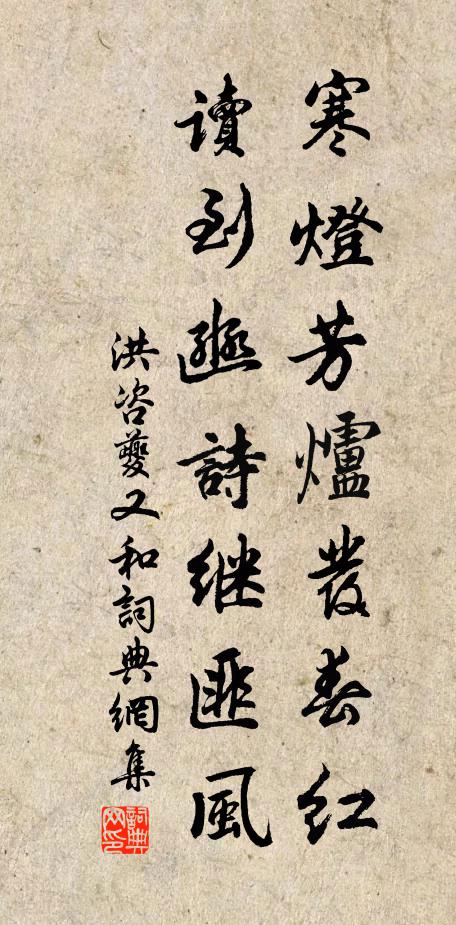 寒燈芳爐發春紅
讀到豳詩繼匪風
洪咨夔又和詞典網集
詞典网印